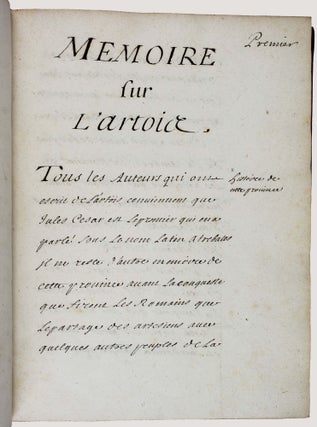 Premier
MEMOIRE
sur
L'artois.
Tous les Auteurs qui ont
escrit de L'artois conviennent que
Jules Cesar est Le premier qui en a
parlé sous Le nom Latin atrebates
jl ne reste d'autre memoire de
cette province avant La conqueste
que firent Les Romains que
Le partage des artesiens avec
quelques autres peuples de La
histoire de
cette province